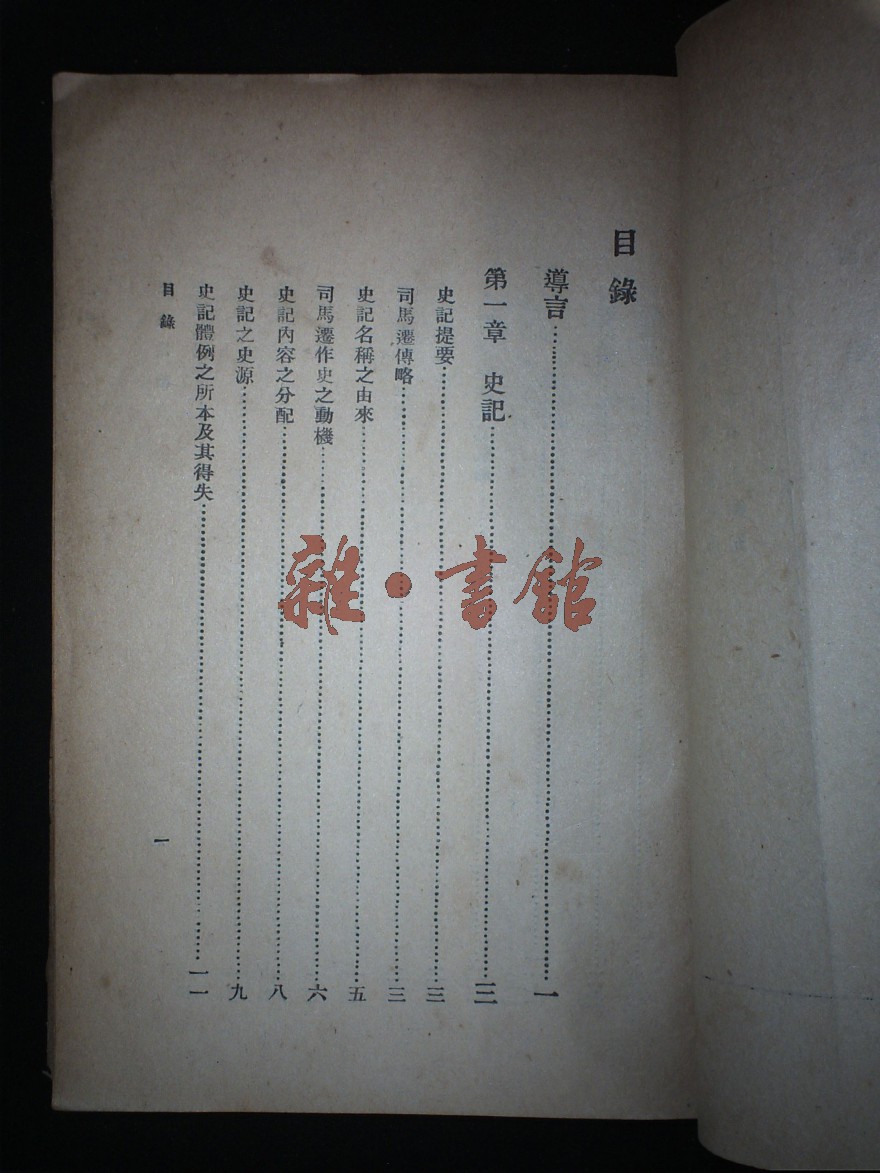 目錄
導言……一
第一章 史記……三
史記提要……三
司馬遷傳略……三
史記名稱之由來……五
司馬遷作史之動機……六
史記內容之分配……八
史記之史源……九
史記體例之所本及其得失……一一
目錄
一
雜·書館